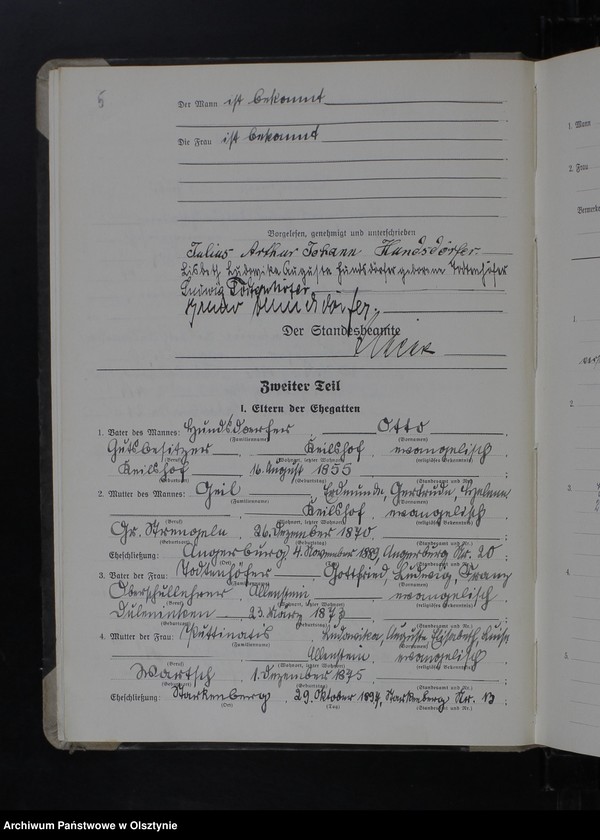 5
Der Mann ist bekannt
Die Frau ist bekannt
Vorgelesen, genehmigt und unterschrieben
Julius Arthur Johann Hundsdörfer
Lisbeth Ludowike Auguste Hundsdörfer geborene Todtenhöfer
Ludwig Todtenhöfer
Hundsdörfer.
Der Standesbeamte
Zweiter Teil
I. Eltern der Ehegatten
1. Vater des Mannes: Hundsdoerfer, Otto
(Familienname) (Vornamen)
Gutsbesitzer Keilshof, evangelisch;
(Beruf) (Wohnort, letzter Wohnort) (religiöses Bekenntnis)
Keilshof 16. August 1855
(Geburtsort) (Geburtstag) (Standesamt und Nr.)
2. Mutter des Mannes: Geil Erdmunda, Gertrude,
(Familienname) (Vornamen)
Keilshof, evangelisch
(Beruf) (Wohnort, letzter Wohnort) (religiöses Bekenntnis)
Gr. Strengeln, 26. Dezember 1870
(Geburtsort) (Geburtstag) (Standesamt und Nr.)
Eheschließung: Angerburg, 4. November 1889, Angerburg Nr. 20;
(Ort) (Tag) (Standesamt und Nr.)
3. Vater der Frau: Todtenhöfer Gottfried, Ludwig, Franz
(Familienname) (Vornamen)
Oberschullehrer Allenstein, evangelisch
(Beruf) (Wohnort, letzter Wohnort) (religiöses Bekenntnis)
23. März 1873
(Geburtsort) (Geburtstag) (Standesamt und Nr.)
4. Mutter der Frau: Puttinatis Ludowika, Auguste Elisabeth, Luise
(Familienname) (Vornamen)
Allenstein, evangelisch
(Beruf) (Wohnort, letzter Wohnort) (religiöses Bekenntnis)
Wartsch 1. Dezember 1875
(Geburtsort) (Geburtstag) (Standesamt und Nr.)
Eheschließung: Starkenberg, 29. Oktober 1897, Starkenberg Nr. 13;
(Ort) (Tag) (Standesamt und Nr.)
1. Mann
2. Frau
Archiwum Państwowe w Olsztynie